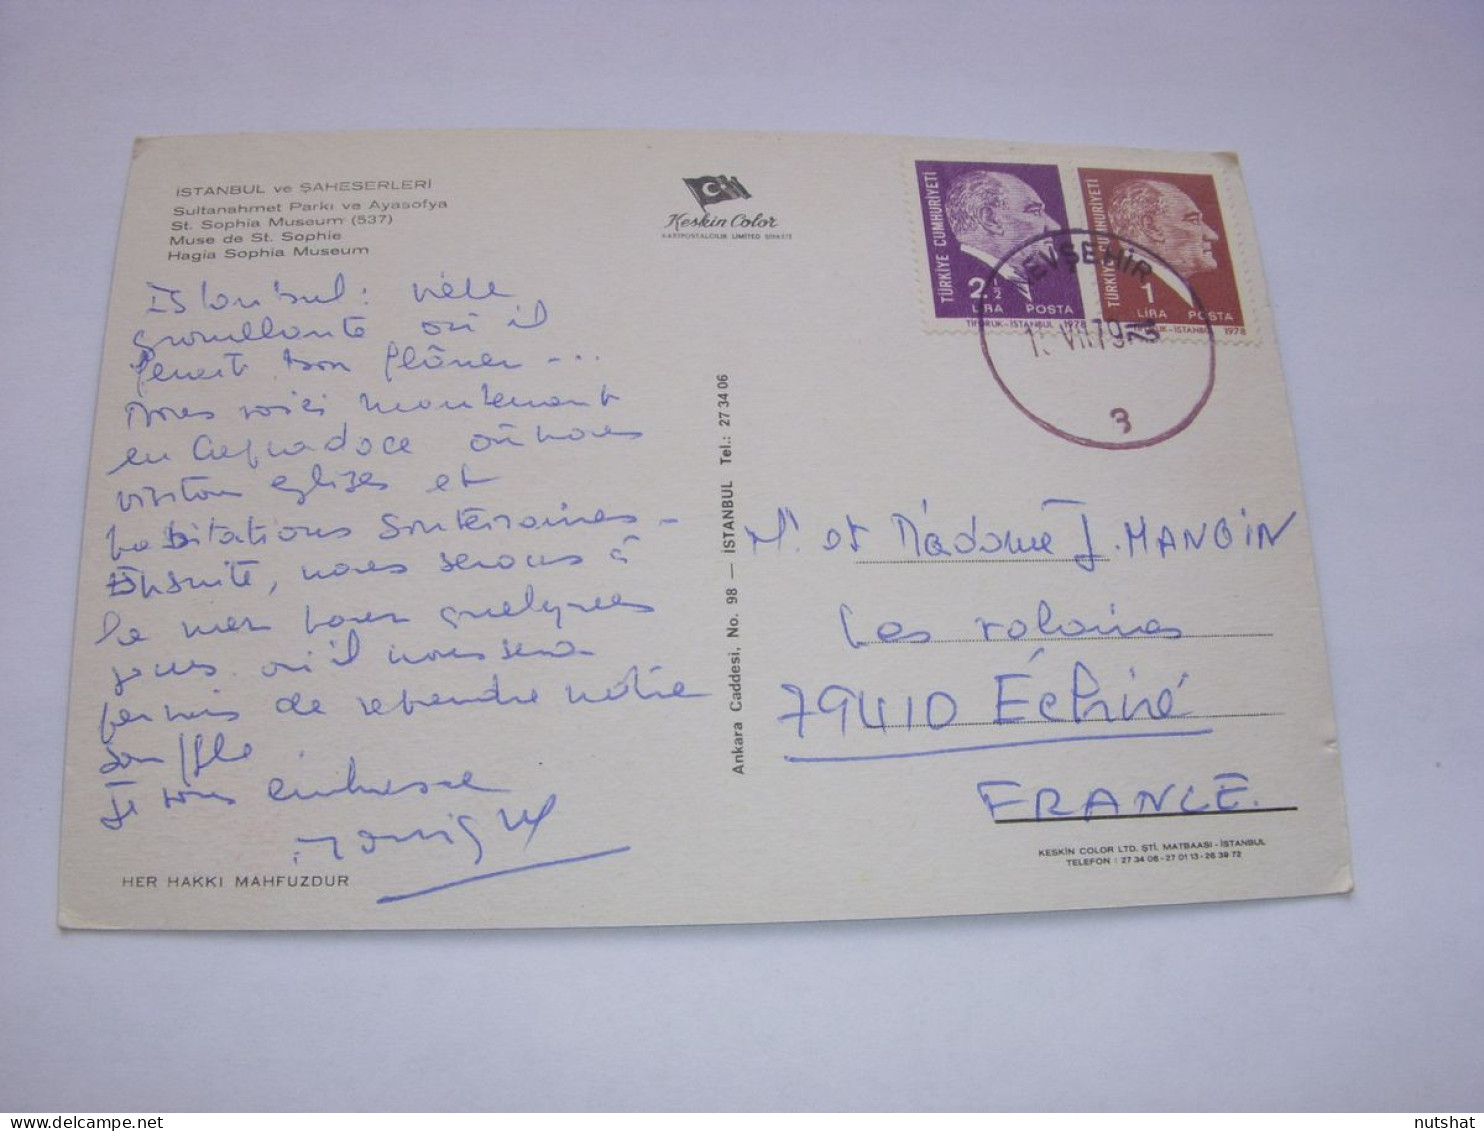 İSTANBUL ve ŞAHESERLERİ
Sultanahmet Parkı ve Ayasofya
St. Sophia Museum (537)
Muse de St. Sophie
Hagia Sophia Museum
Keskin Color
KARTPOSTALCILIK LIMITED ŞİRKETİ
TÜRKİYE CUMHURİYETİ
2 1/2
LİRA POSTA
TİFDRUK-İSTANBUL 1978
TÜRKİYE CUMHURİYETİ
1
LİRA POSTA
TİFDRUK-İSTANBUL 1978
NEVŞEHİR
VII 79
3
Istanbul : ville
grouillante où il
ferait bon flâner ...
Nous voici maintenant
en Cappadoce où nous
visitons églises et
habitations souterraines -
Ensuite, nous serons à
la mer pour quelques
jours où il nous sera
permis de reprendre notre
souffle
Je vous embrasse
Monique
HER HAKKI MAHFUZDUR
Ankara Caddesi, No. 98 — İSTANBUL Tel.: 27 34 06
Mr et Madame J. MANGIN
Les
79410 Échiré
FRANCE.
KESKİN COLOR LTD. ŞTİ. MATBAASI - İSTANBUL
TELEFON : 27 34 06 - 27 01 13 - 26 39 72
nutshat